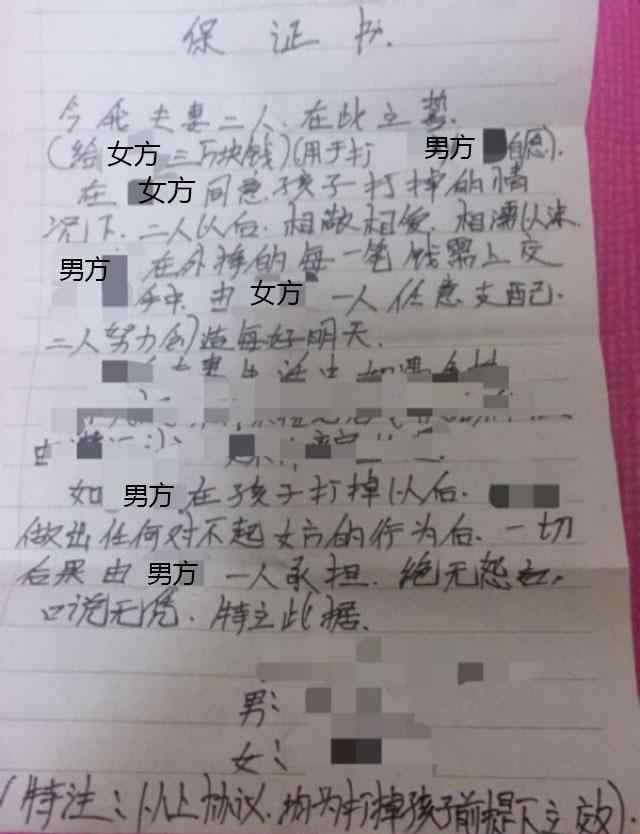 保 证 书.
今我夫妻二人.在此立誓.
(给女方三万块钱)(用于打 男方 自愿).
在 女方同意孩子打掉的情
况下.二人以后.相敬相爱.相濡以沫.
男方 在外挣的每一笔钱需上交
手中.由 女方 一人任意支配.
二人努力创造每好明天.
由
如 男方 在孩子打掉以后.
做出任何对不起女方的行为后.一切
后果由 男方 一人承担.绝无怨言,
口说无凭.特立此据.
男:
女:
(特注:以上协议.均为打掉孩子前提下立效).